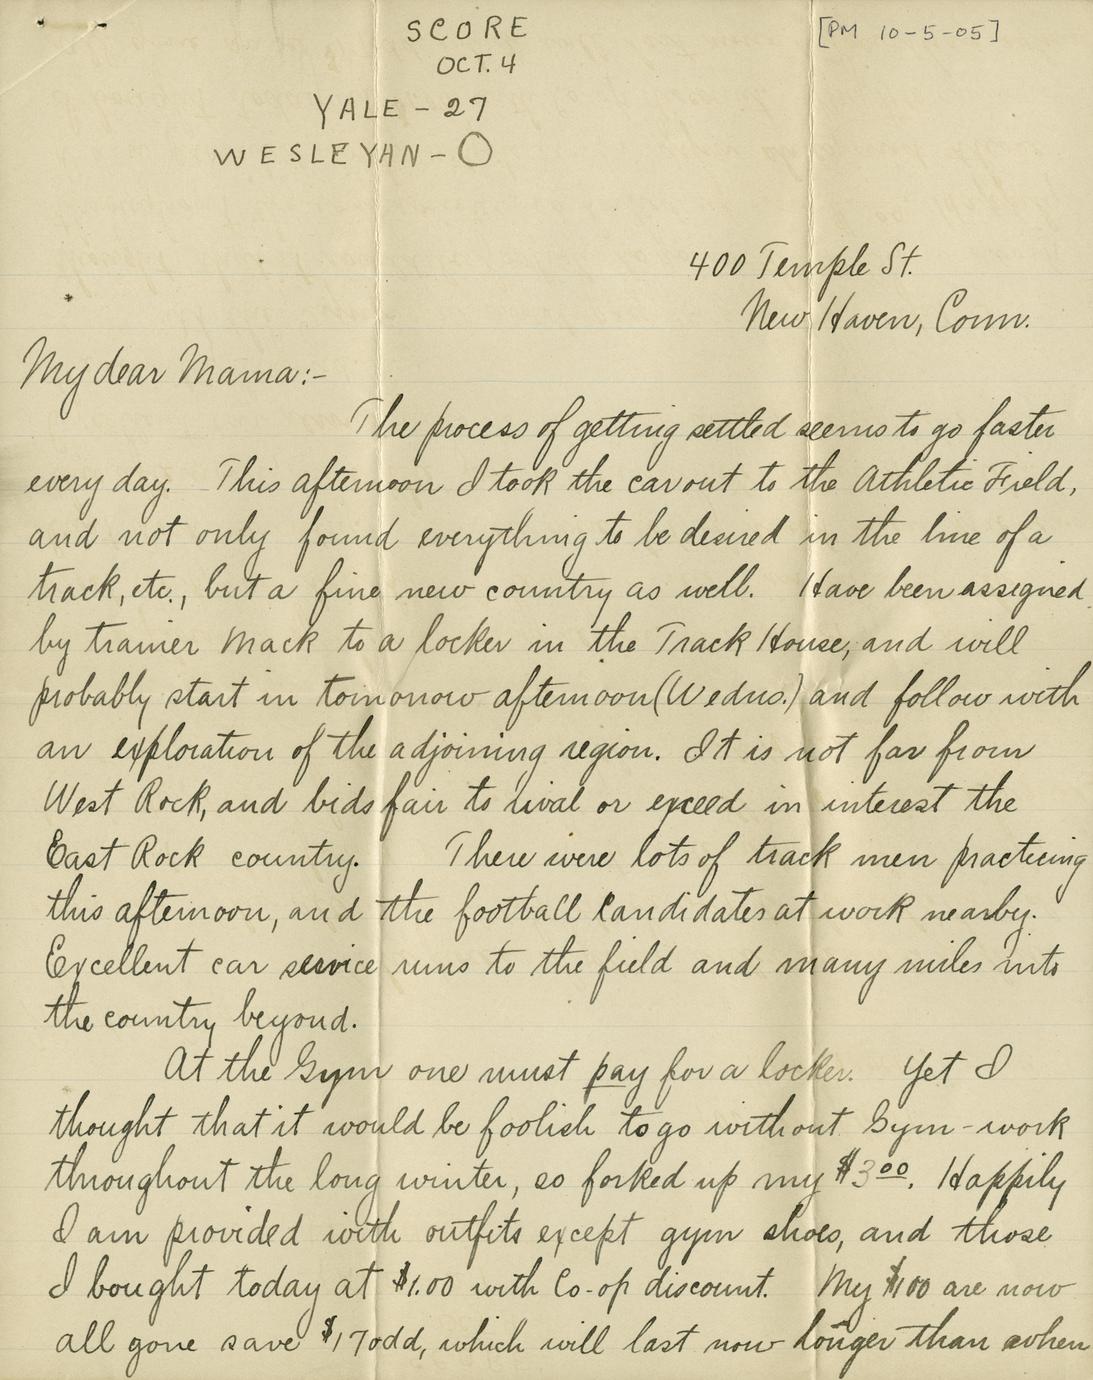 SCORE
[PM 10-5-05]
OCT. 4
YALE - 27
WESLEYAN - 0
400 Temple St.
New Haven, Conn.
My dear Mama:-
The process of getting settled seems to go faster
every day. This afternoon I took the car out to the Athletic Field,
and not only found everything to be desired in the line of a
track, etc., but a fine new country as well. Have been assigned
by trainer Mack to a locker in the Track House, and will
probably start in tomorrow afternoon (Wednes.) and follow with
an exploration of the adjoining region. It is not far from
West Rock, and bids fair to rival or exceed in interest the
East Rock country. There were lots of track men practicing
this afternoon, and the football candidates at work nearby.
Excellent car service runs to the field and many miles into
the country beyond.
At the Gym one must pay for a locker. Yet I
thought that it would be foolish to go without Gym-work
throughout the long winter, so forked up my $3.00. Happily
I am provided with outfits except gym shoes, and those
I bought today at $1.00 with Co-op discount. My $100 are now
all gone save $17 odd, which will last now longer than when